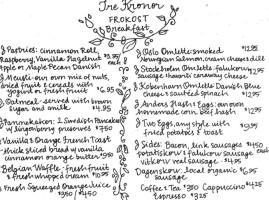 Tre Kronor
FROKOST
Breakfast
Pastries: cinnamon Roll,
Raspberry, Vanilla, Hazelnut
Apple or Maple Pecan Danish
$3.95
Muesli - our own mix of nuts,
dried fruit & cereals with
yogurt or fresh fruit $6.95
Oatmeal - served with brown
sugar and milk $4.95
Pannkakor: 2 Swedish Pancakes
w/ lingonberry preserves $7.50
Vanilla & Orange French Toast
thick sliced bread w/ vanilla
cinnamon orange butter
Belgian Waffle: fresh fruit
& fresh whipped cream
Fresh Squeezed Orange Juice
Oslo Omelette: smoked
Norwegian Salmon, cream cheese & dill
$12.95
Stockholm Omelette: falukorv
sausage havarti caraway cheese
København Omelette Danish Blue
cheese sautéed spinach $12.95
Anders Hash & Eggs: our own
homemade corned beef hash $12.95
Two Eggs, any style with
fried potatoes & toast $9.95
Sides: Bacon, link sausages
potatiskorv, falukorv sausage
vitkorv veal sausage $4.95
Dagenskorv: local organic $6.95
sausage
Coffee & Tea Cappuccino
Espresso $3.25